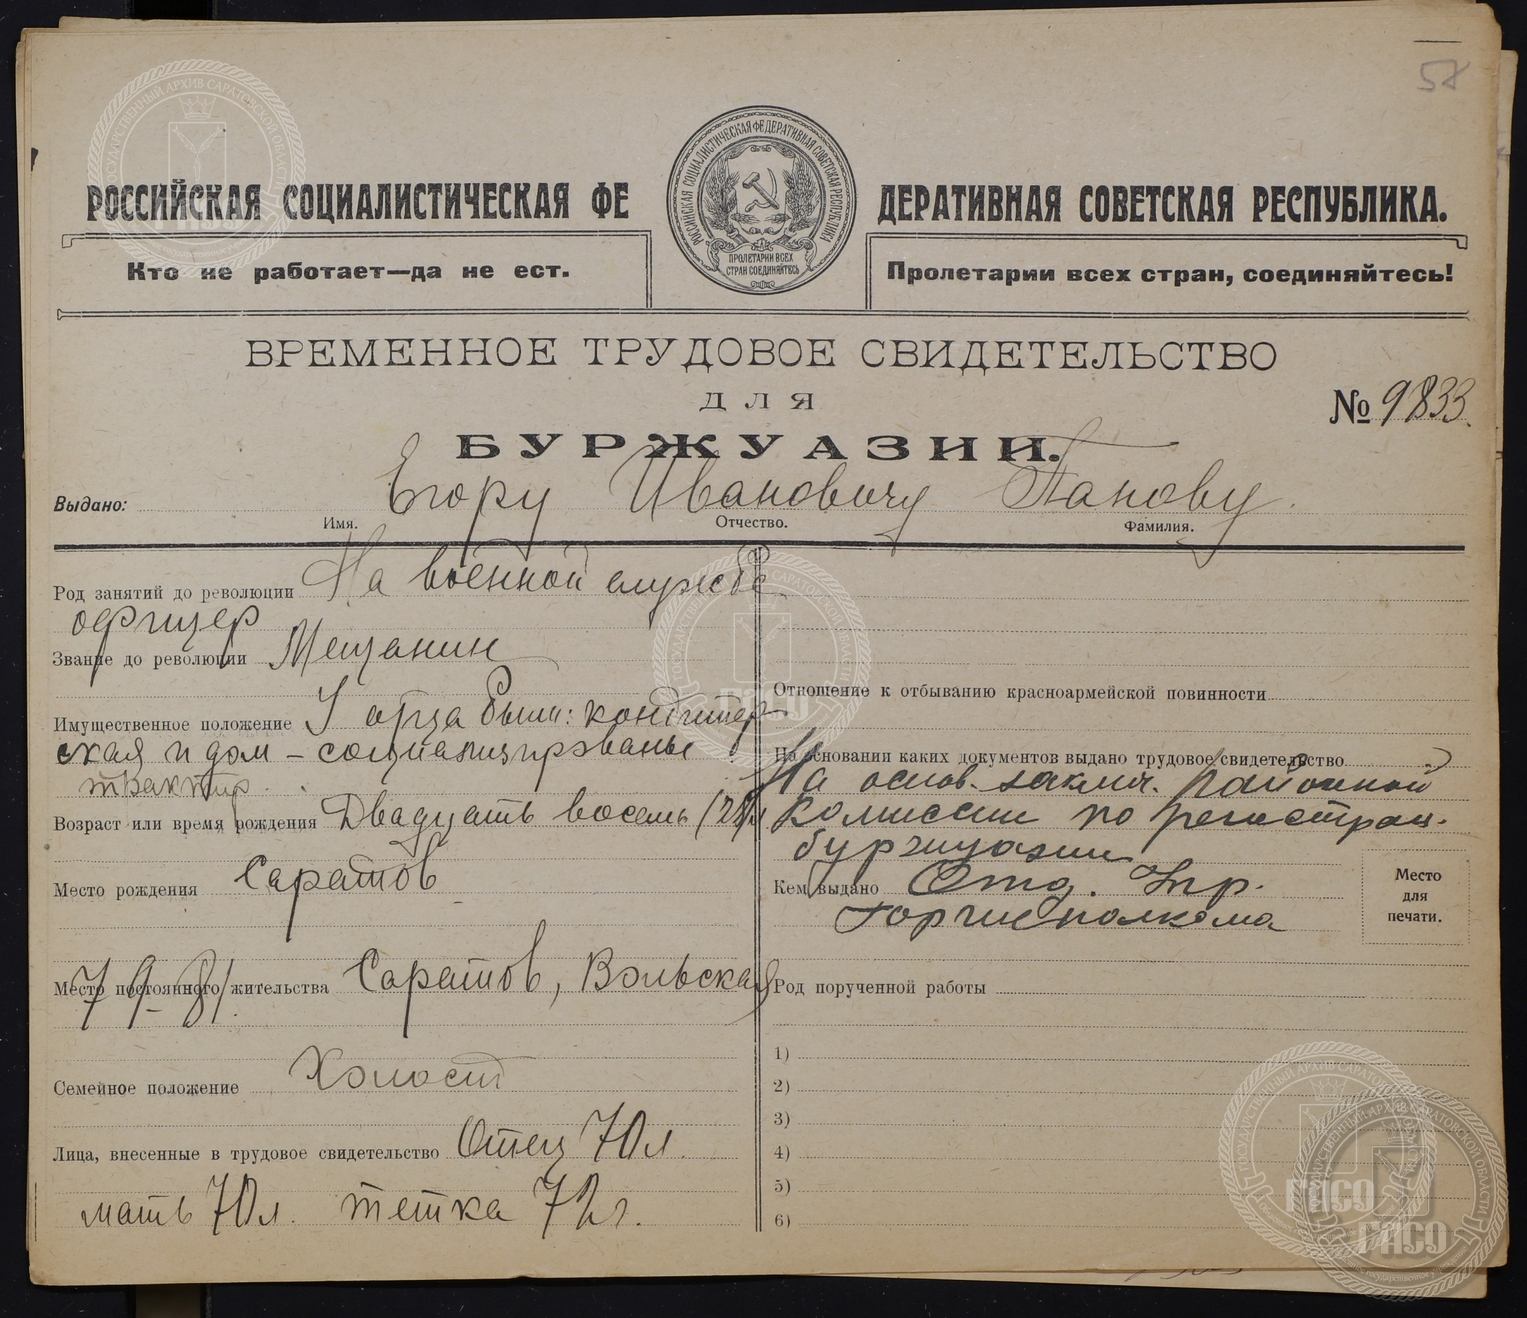 58
РОССИЙСКАЯ СОЦИАЛИСТИЧЕСКАЯ ФЕ ДЕРАТИВНАЯ СОВЕТСКАЯ РЕСПУБЛИКА.
РОССИЙСКАЯ СОЦИАЛИСТИЧЕСКАЯ ФЕДЕРАТИВНАЯ СОВЕТСКАЯ РЕСПУБЛИКА
ПРОЛЕТАРИИ ВСЕХ
СТРАН СОЕДИНЯЙТЕСЬ
Кто не работает—да не ест.
Пролетарии всех стран, соединяйтесь!
ВРЕМЕННОЕ ТРУДОВОЕ СВИДЕТЕЛЬСТВО
ДЛЯ
№ 9833.
БУРЖУАЗИИ.
Выдано: Егору Ивановичу Панову.
Имя. Отчество. Фамилия.
Род занятий до революции На военной службе
офицер
Звание до революции Мещанин
Имущественное положение У отца были: кондитер
ская и дом – социализированы
трактир.
Возраст или время рождения Двадцать восемь (28) л
Место рождения Саратов
Место постоянного жительства Саратов, Вольская
79-81.
Семейное положение Холост
Лица, внесенные в трудовое свидетельство Отец 70 л.
мать 70 л. тетка 72 г.
Отношение к отбыванию красноармейской повинности
На основании каких документов выдано трудовое свидетельство
На основ. заключ. Районной
комиссии по регистрац.
буржуазии
Кем выдано Отд. Упр.
Горисполкома
Место
для
печати.
Род порученной работы
1)
2)
3)
4)
5)
6)
ГОСУДАРСТВЕННЫЙ АРХИВ САРАТОВСКОЙ ОБЛАСТИ
ГАСО
ГОСУДАРСТВЕННЫЙ АРХИВ САРАТОВСКОЙ ОБЛАСТИ
ГАСО
ГОСУДАРСТВЕННЫЙ АРХИВ САРАТОВСКОЙ ОБЛАСТИ
ГАСО
ГОСУДАРСТВЕННЫЙ АРХИВ САРАТОВСКОЙ ОБЛАСТИ
ГАСО